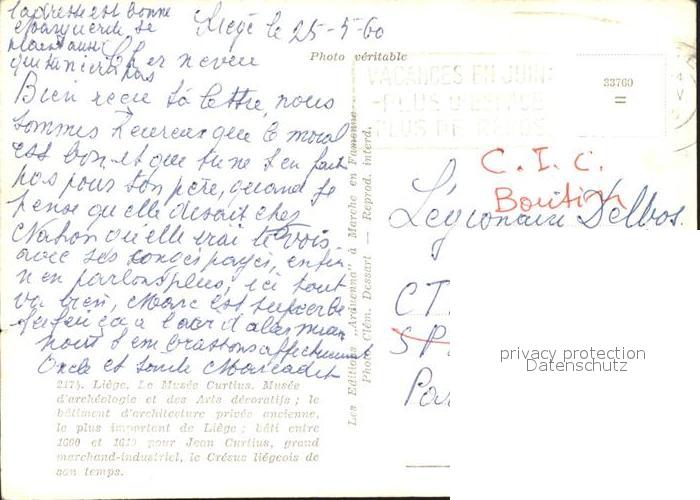 l'adresse est bonne
Marguerite se
plaint aussi
qui n'écrit pas
Liège le 25-5-60
Cher neveu
Photo véritable
VACANCES EN JUIN:
-PLUS D'ESPACE
PLUS DE REPOS.
33760
=
Bien reçu ta lettre, nous
sommes heureux que le moral
est bon, et que tu ne t'en fait
pas pour ton père, quand je
pense qu'elle disait chez
Nahon qu'elle irai te vois
avec ses congés payés, enfin
n'en parlons plus, ici tout
va bien, Marc est superbe
ça a l'air d'aller mieux
nous t'embrassons affectueusement
Oncle et tante
C.I.C.
Bouti
Légionnaire Delbos.
CT
SP
Pa
Les Editions „Arduenna" à Marche en Famenne.
Photo Clém. Dessart — Reprod. interd.
217). Liège. Le Musée Curtius. Musée
d'archéologie et des Arts décoratifs; le
bâtiment d'architecture privée ancienne,
le plus important de Liège; bâti entre
1600 et 1610 pour Jean Curtius, grand
marchand-industriel, le Crésus liégeois de
son temps.
privacy protection
Datenschutz